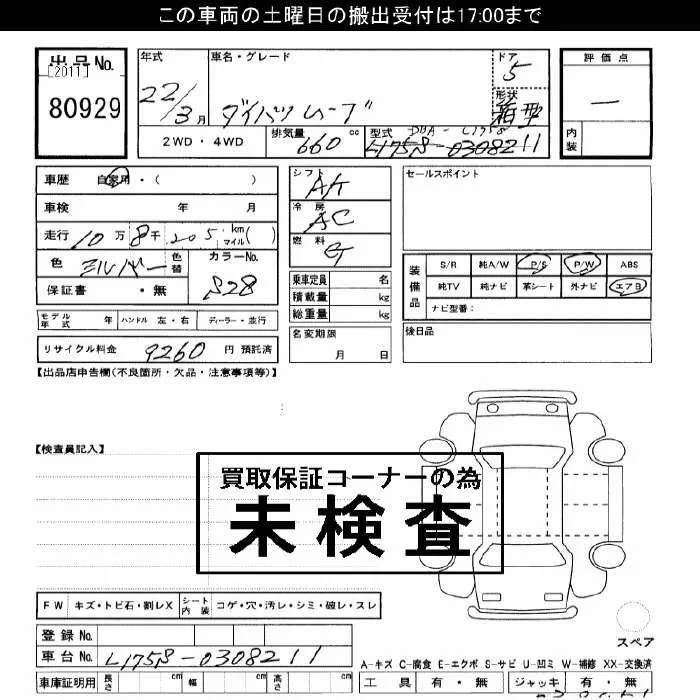 この車両の土曜日の搬出受付は17:00まで
出品No.
[2011]
80929
年式
22/3月
車名・グレード
ダイハツムーブ
ドア
5
形状
箱型
評価点
―
内装
2WD・4WD
排気量
660 cc
型式
DBA-L175S
L175S-0308211
車歴 自家用・( )
車検 年 月
走行 10万8千205 km マイル( )
色 シルバー 色替
カラーNo.
S28
保証書 ・無
シフト
AT
冷房
AC
燃料
G
セールスポイント
乗車定員 名
積載量 kg
総重量 kg
装備品
S/R 純A/W P/S P/W ABS
純TV 純ナビ 革シート 外ナビ エアB
ナビ型番:
モデル年式 年 ハンドル 左・右 ディーラー・並行
名変期限
月 日
後日品
リサイクル料金 9260 円 預託済
【出品店申告欄(不良箇所・欠品・注意事項等)】
【検査員記入】
買取保証コーナーの為
未検査
FW キズ・トビ石・割レX シート内装 コゲ・穴・汚レ・シミ・破レ・スレ
登録No.
車台No. L175S-0308211
スペア
A-キズ C-腐食 E-エクボ S-サビ U-凹ミ W-補修 XX-交換済
車庫証明用 長さ cm 幅 cm 高さ cm
工具 有・無 ジャッキ 有・無